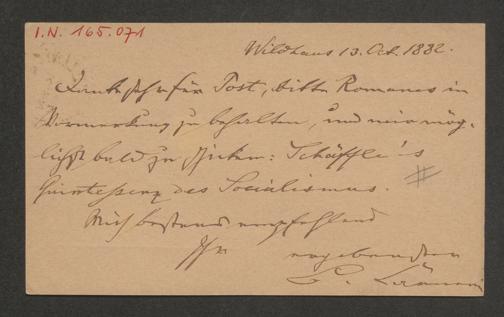 I.N. 165.071
Wildhaus 13. Oct. 1882.
Danke sehr für Post, bitte Romanes in
Vormerkung zu behalten, und mir mög-
lichst bald zu schicken: Schäffle's
Quintessenz des Socialismus. #
Mich bestens empfehlend
Ihr ergebenster